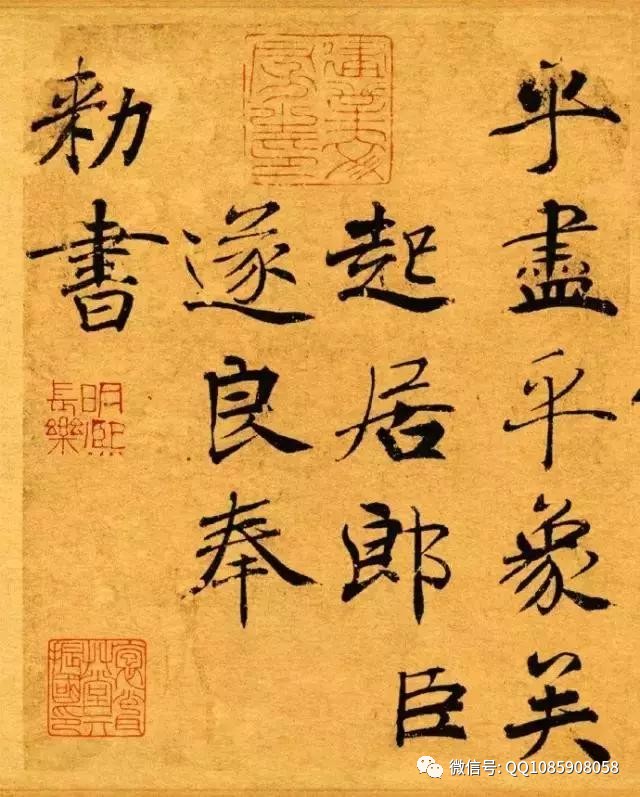 乎盡乎象矣
起居郎臣
遂良奉
勑書
建業文房之印
明熙長樂
微信号: QQ1085908058